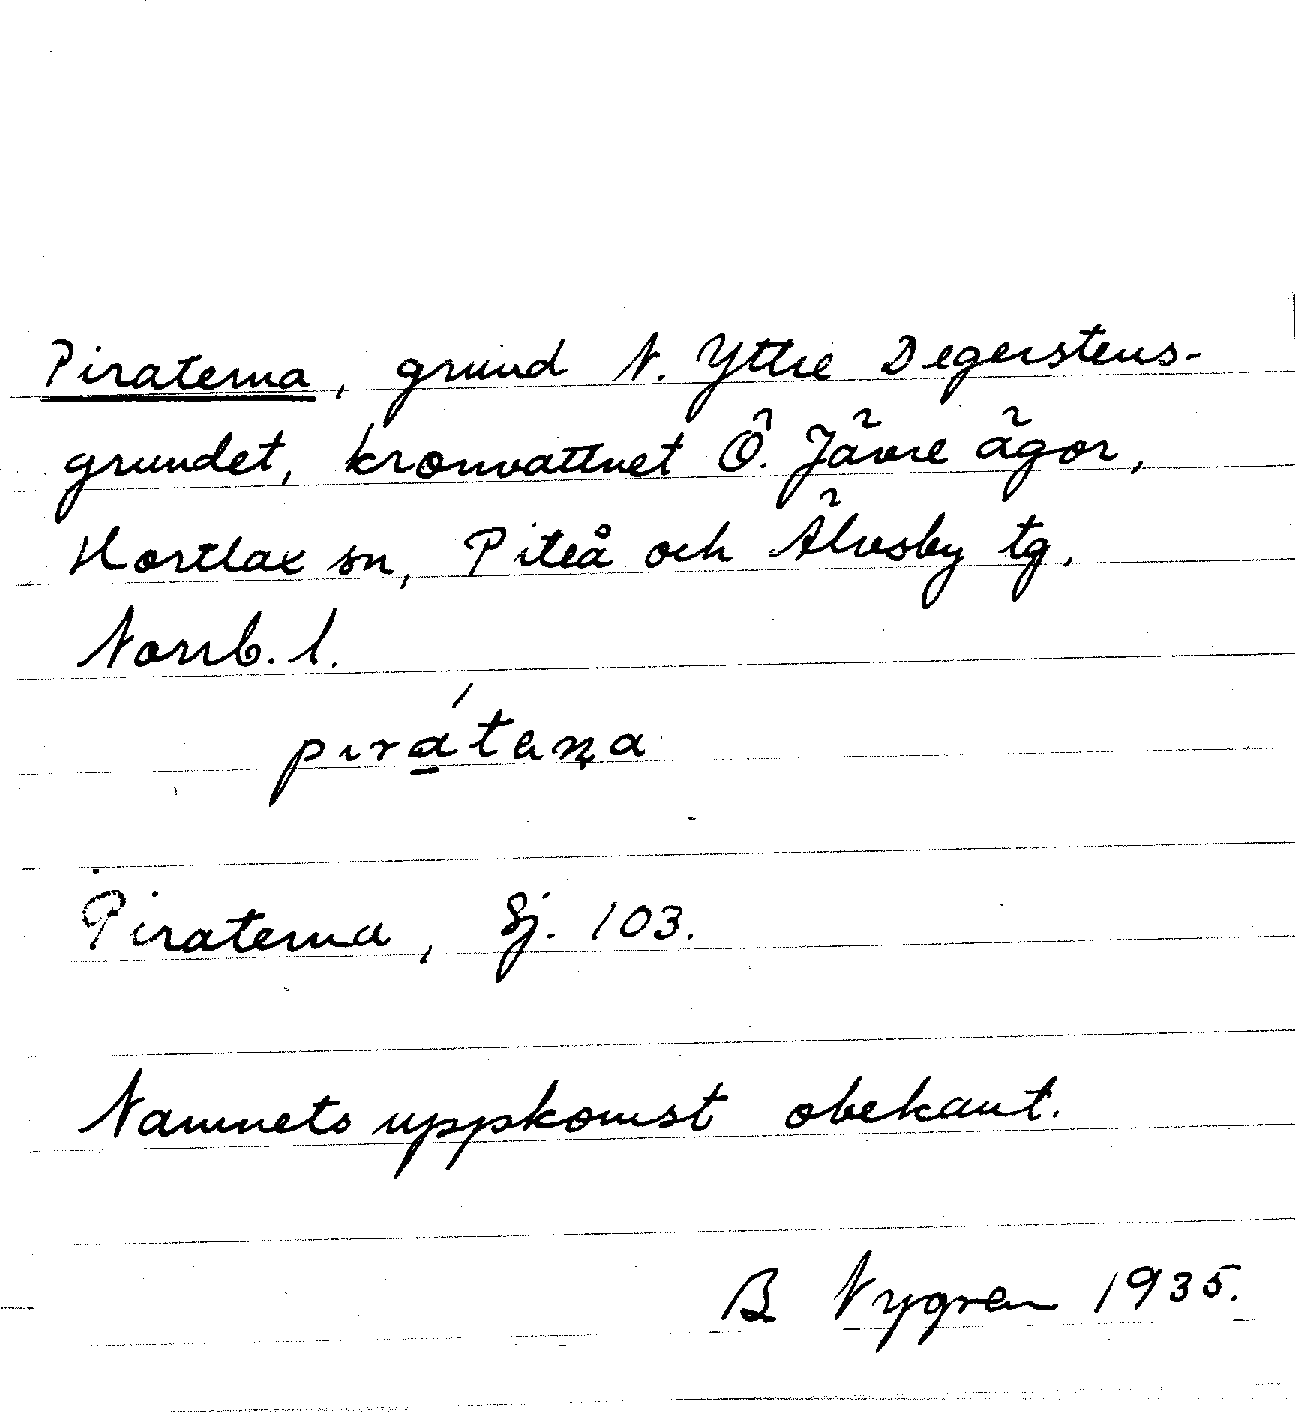 Piraterna, grund N. Yttre Degerstens-
grundet, kronvattnet Ö. Jävre ägor,
Hortlax sn, Piteå och Älvsby tg,
Norrb. l.
pırátaṇa
Piraterna, Sj. 103.
Namnets uppkomst obekant.
B Nygren 1935.